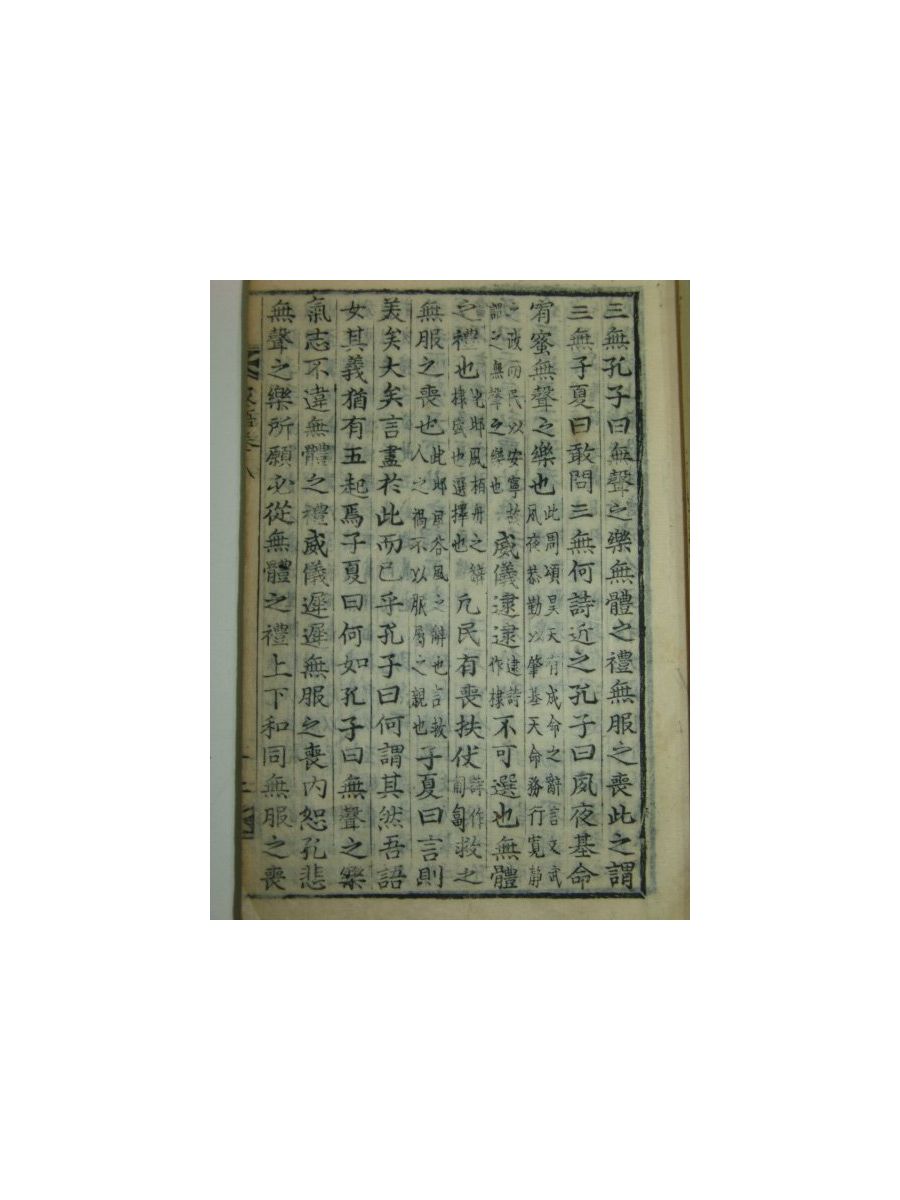 三無孔子曰無聲之樂無體之禮無服之喪此之謂
三無子夏曰敢問三無何詩近之孔子曰夙夜基命
宥蜜無聲之樂也此周頌昊天有成命之辭言文武夙夜恭勤以肇基天命務行寬靜
之政而民以安寧故謂之無聲之樂也威儀逮逮逮詩作棣不可選也無體
之禮也此邶風栢舟之辭棣盛也選擇也凢民有喪扶伏詩作匍匐救之
無服之喪也此邶風谷風之辭也言救人之禍不以服屬之親也子夏曰言則
美矣大矣言盡於此而已乎孔子曰何謂其然吾語
女其義猶有五起焉子夏曰何如孔子曰無聲之樂
氣志不違無體之禮威儀遲遲無服之喪內恕孔悲
無聲之樂所願必從無體之禮上下和同無服之喪